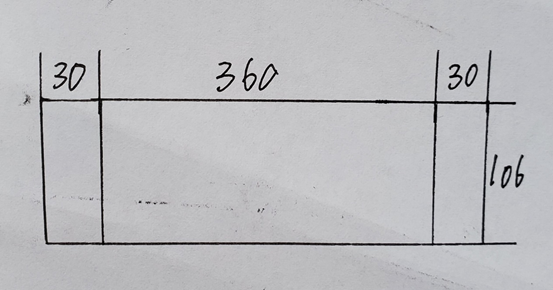 30 360 30
106